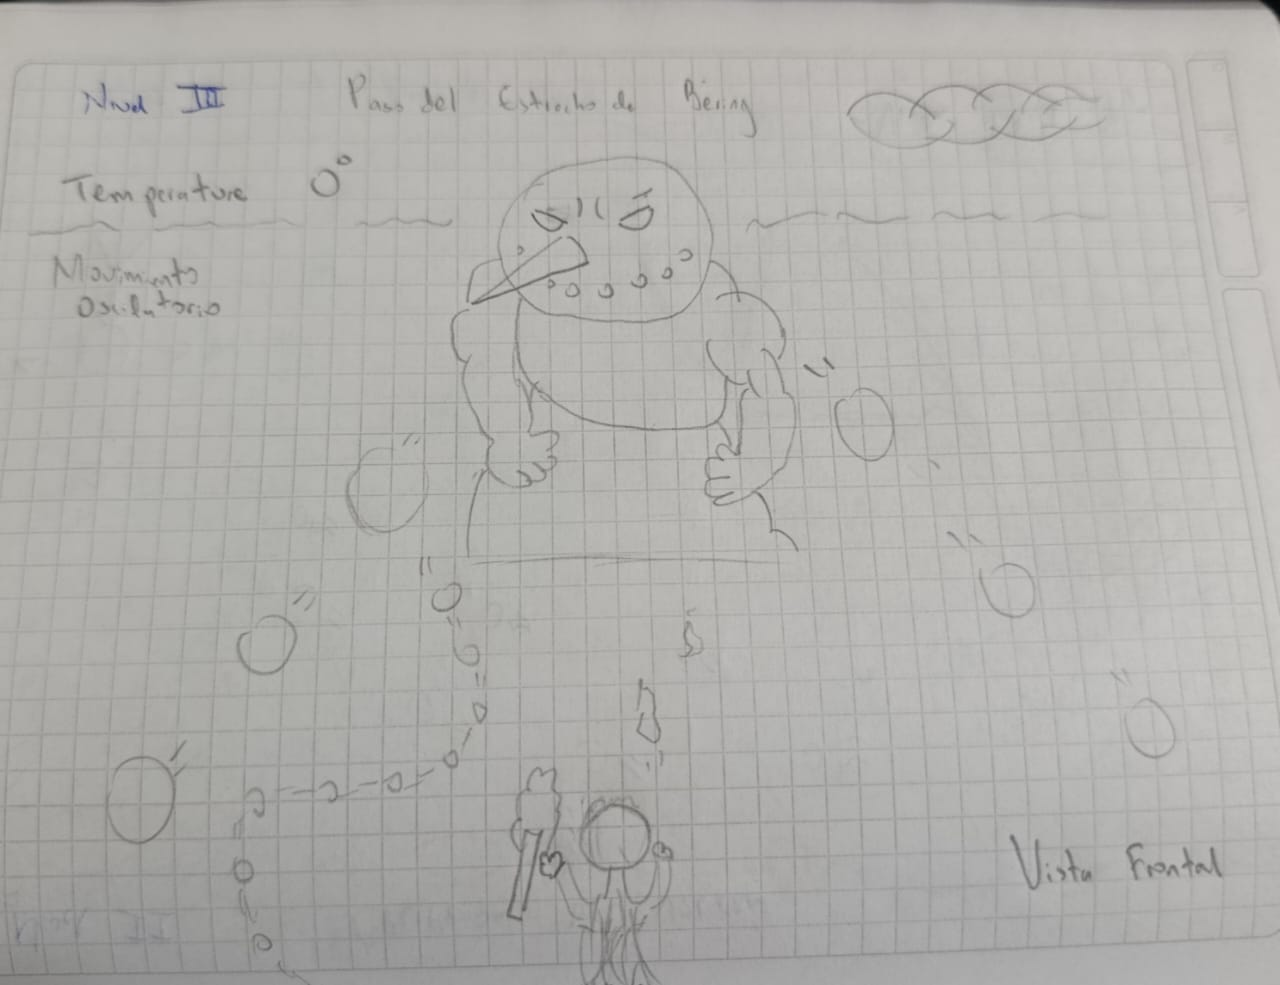 Nivel III Paso del Estrecho de Bering
Temperature 0°
Movimiento
Oscilatorio
Vista Frontal